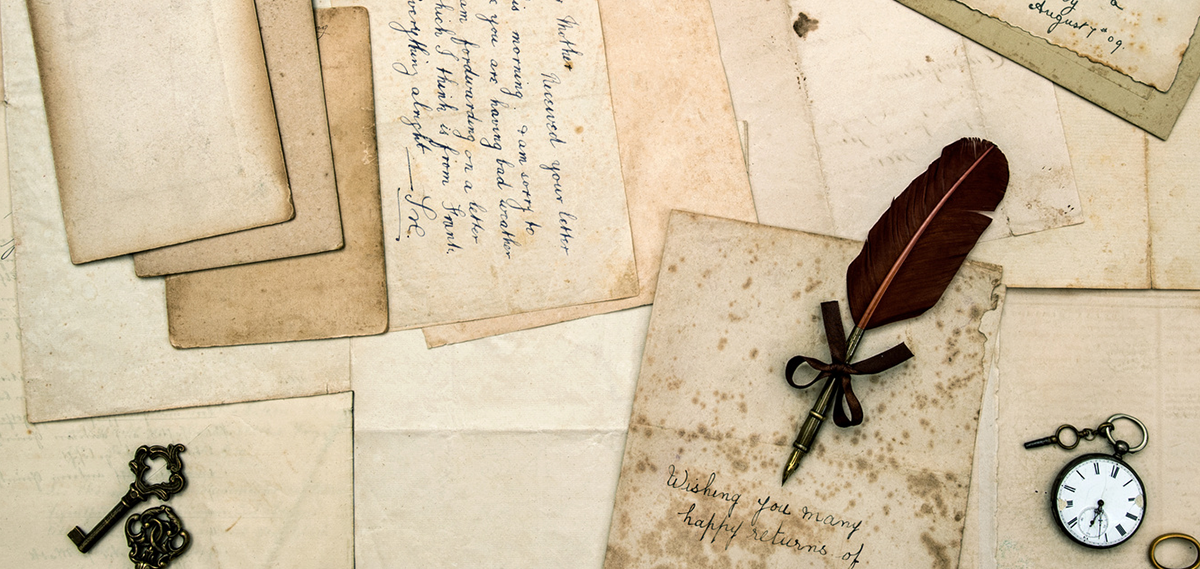 Mother
Received your letter
is morning & am sorry to
you are having bad weather
am fordwarding on a letter
hich I think is from Frank.
verything alright
August 7th 09.
Wishing you many
happy returns of